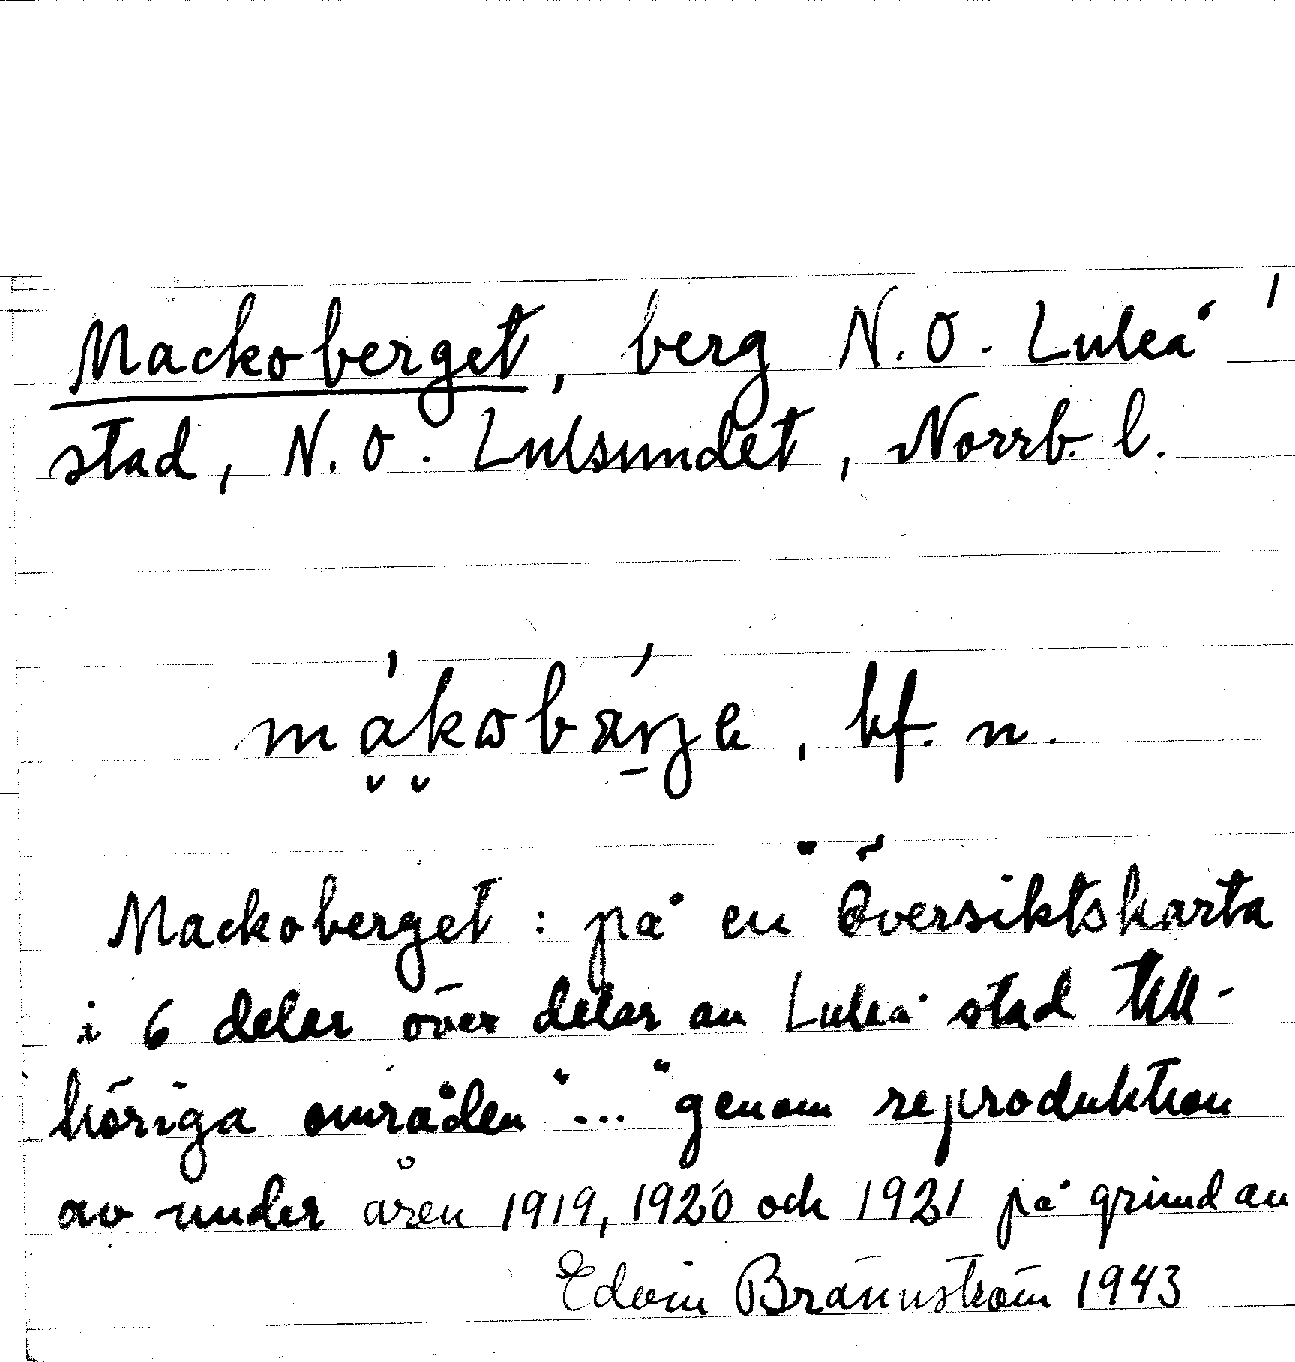 Mackoberget, berg N.O. Luleå 1
stad, N.O. Lulsundet, Norrb. l.
, bf. n.
Mackoberget : på en "Översiktskarta
i 6 delar över delar av Luleå stad till-
höriga områden" ... "genom reproduktion
av under åren 1919, 1920 och 1921 på grund av
Edvin Brännström 1943